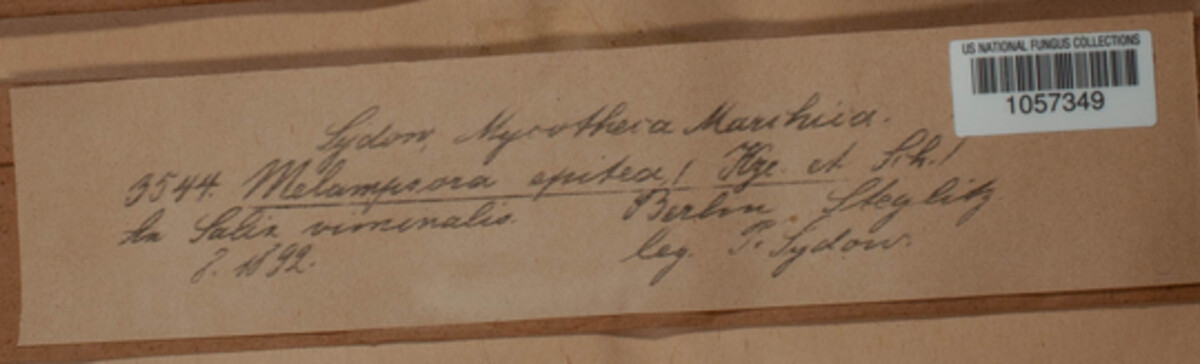 US NATIONAL FUNGUS COLLECTIONS
1057349
Sydow, Mycotheca Marchica.
3544. Melampsora epitea, (Kze. et Sch.)
An Salix viminalis. Berlin, Steglitz
8. 1892. leg. P. Sydow.